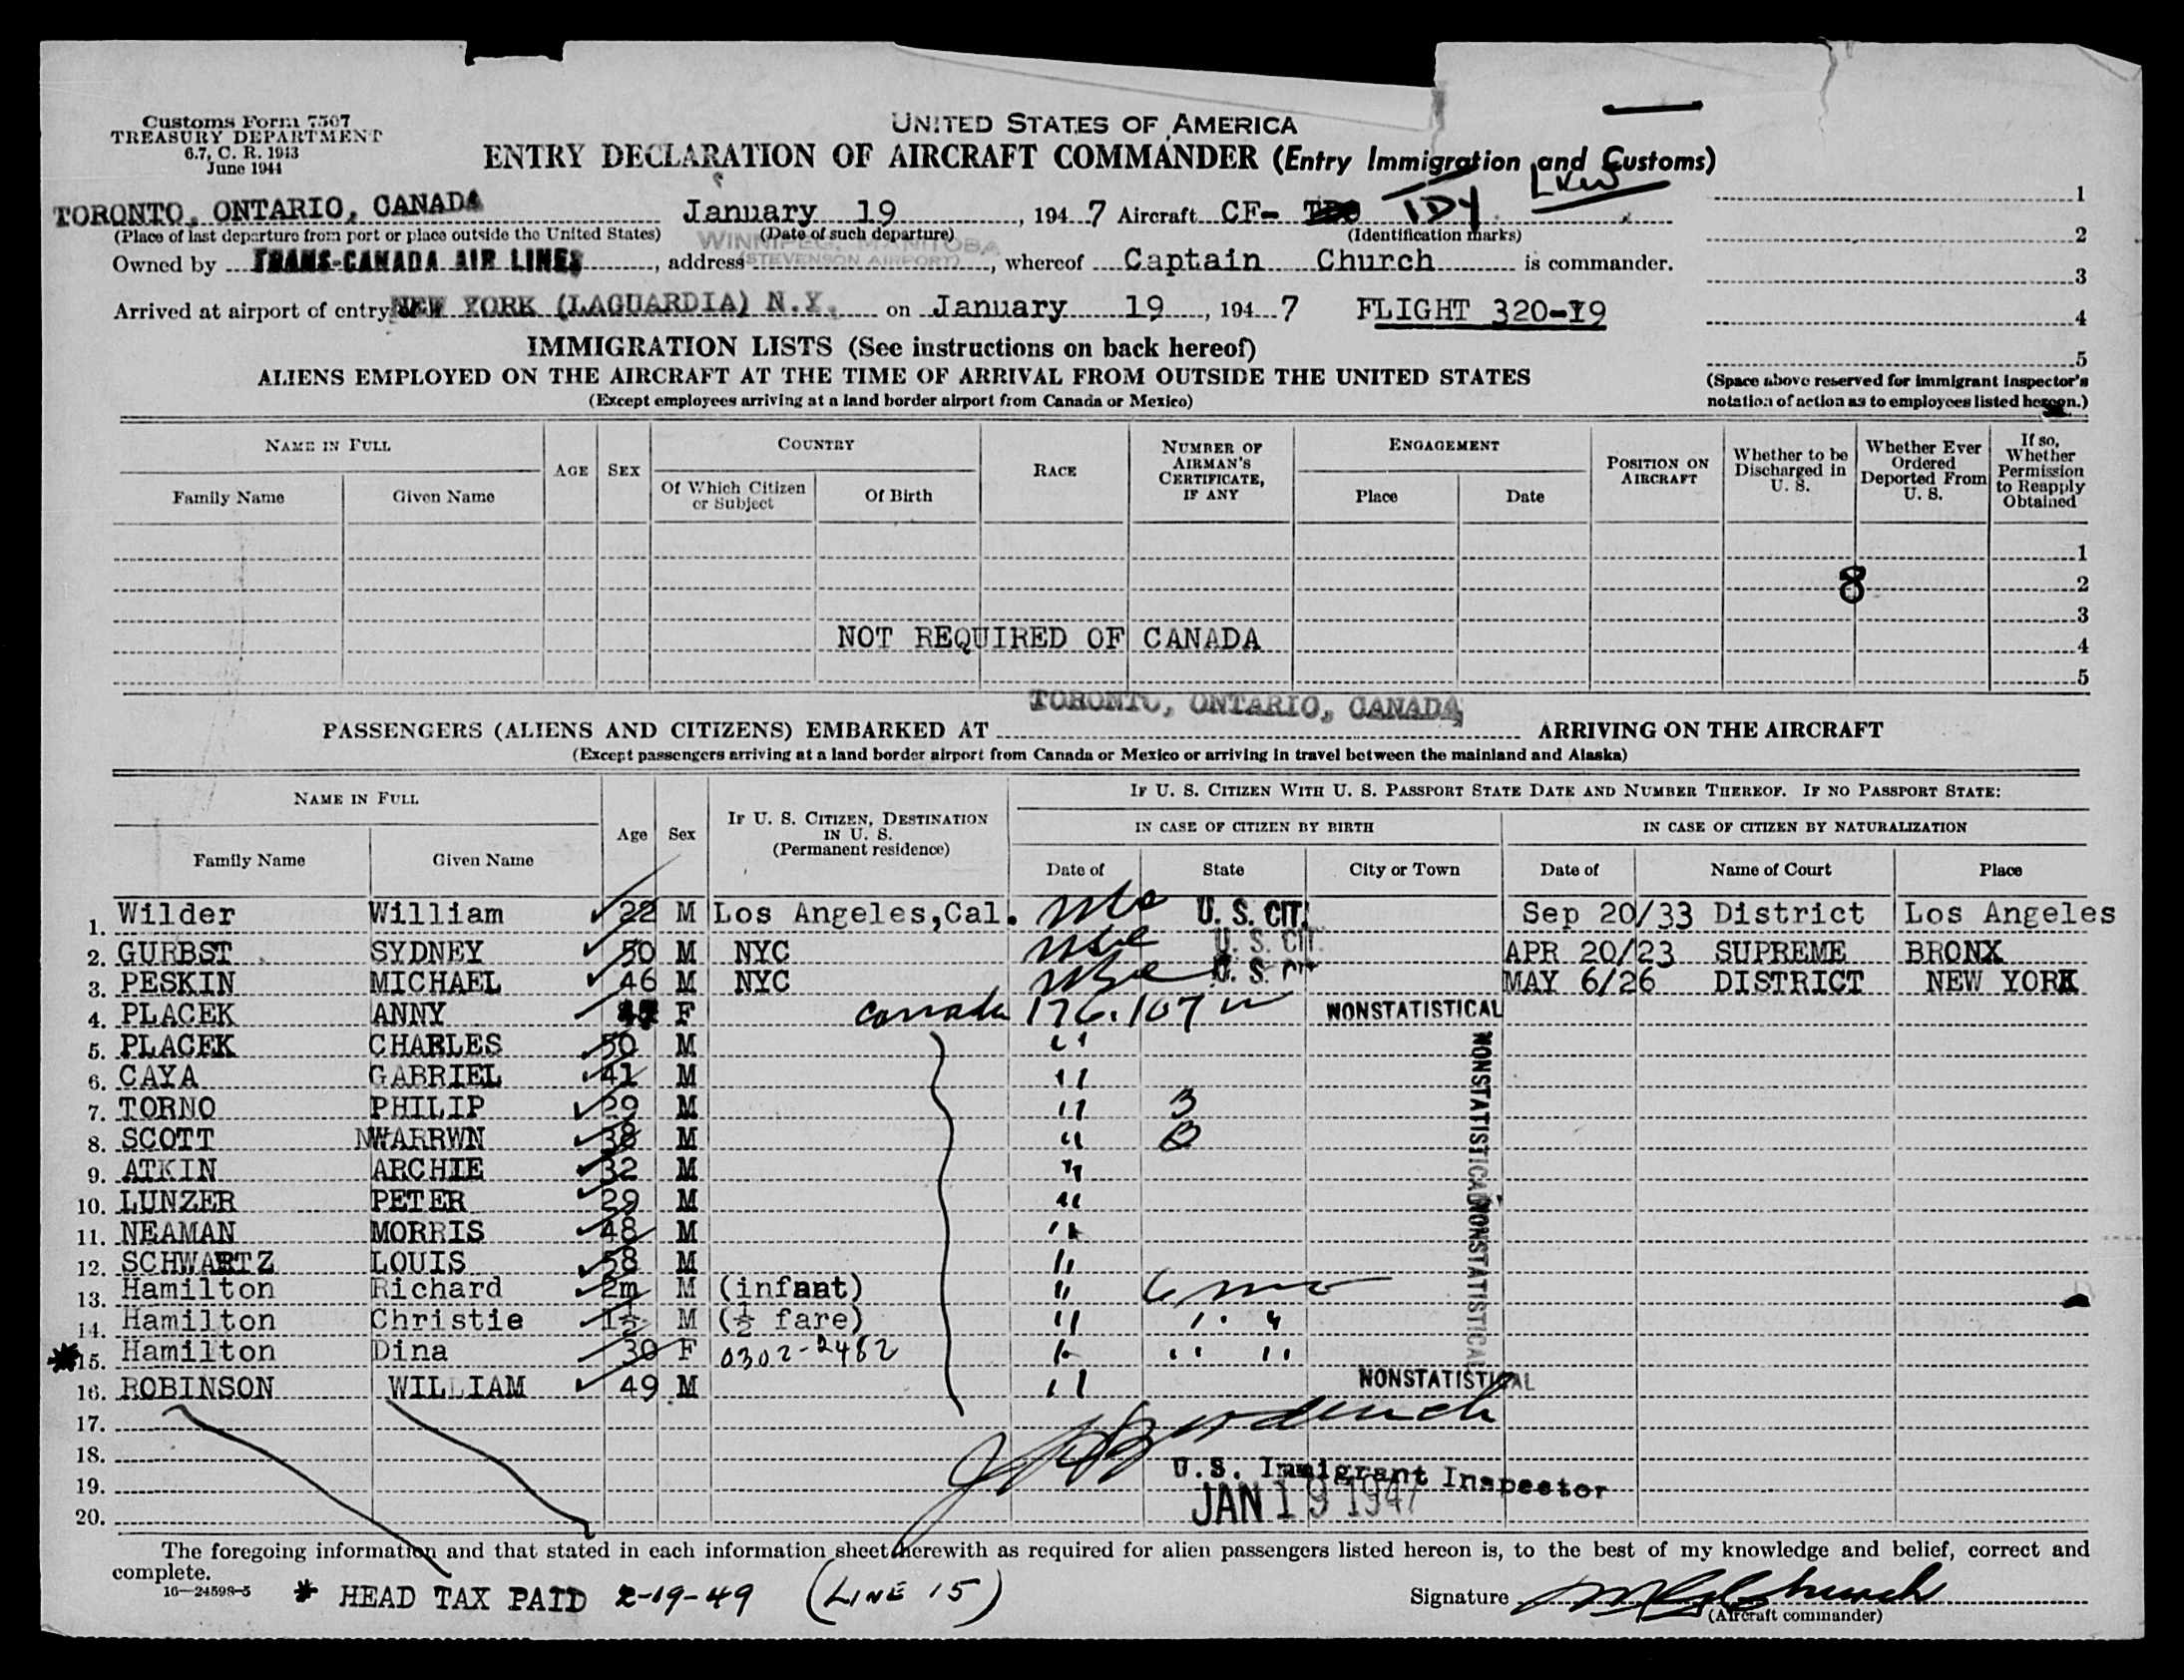 Customs Form 7507
TREASURY DEPARTMENT
6.7, C. R. 1943
June 1944
UNITED STATES OF AMERICA
ENTRY DECLARATION OF AIRCRAFT COMMANDER (Entry Immigration and Customs)
TORONTO, ONTARIO, CANADA January 19, 1947 Aircraft CF- TDY
(Place of last departure from port or place outside the United States) (Date of such departure) (Identification marks)
WINNIPEG, MANITOBA
(STEVENSON AIRPORT)
Owned by TRANS-CANADA AIR LINES, address, whereof Captain Church is commander.
Arrived at airport of entry NEW YORK (LAGUARDIA) N.Y. on January 19, 1947 FLIGHT 320-19
1
2
3
4
5
(Space above reserved for immigrant inspector's
notation of action as to employees listed hereon.)
IMMIGRATION LISTS (See instructions on back hereof)
ALIENS EMPLOYED ON THE AIRCRAFT AT THE TIME OF ARRIVAL FROM OUTSIDE THE UNITED STATES
(Except employees arriving at a land border airport from Canada or Mexico)
NAME IN FULL
Family Name Given Name
AGE SEX
COUNTRY
Of Which Citizen or Subject Of Birth
RACE
NUMBER OF AIRMAN'S CERTIFICATE, IF ANY
ENGAGEMENT
Place Date
POSITION ON AIRCRAFT
Whether to be Discharged in U. S.
Whether Ever Ordered Deported From U. S.
If so, Whether Permission to Reapply Obtained
1
8 2
3
NOT REQUIRED OF CANADA 4
5
TORONTO, ONTARIO, CANADA
PASSENGERS (ALIENS AND CITIZENS) EMBARKED AT ARRIVING ON THE AIRCRAFT
(Except passengers arriving at a land border airport from Canada or Mexico or arriving in travel between the mainland and Alaska)
NAME IN FULL
Family Name Given Name
Age Sex
IF U. S. CITIZEN, DESTINATION IN U. S. (Permanent residence)
IF U. S. CITIZEN WITH U. S. PASSPORT STATE DATE AND NUMBER THEREOF. IF NO PASSPORT STATE:
IN CASE OF CITIZEN BY BIRTH IN CASE OF CITIZEN BY NATURALIZATION
Date of State City or Town Date of Name of Court Place
1. Wilder William 22 M Los Angeles,Cal. U. S. CIT. Sep 20/33 District Los Angeles
2. GURBST SYDNEY 50 M NYC U. S. CIT. APR 20/23 SUPREME BRONX
3. PESKIN MICHAEL 46 M NYC U. S. CIT MAY 6/26 DISTRICT NEW YORK
4. PLACEK ANNY F Canada 176.107 NONSTATISTICAL
5. PLACEK CHARLES 50 M "
6. CAYA GABRIEL 41 M "
7. TORNO PHILIP 29 M " 3
8. SCOTT NWARRWN 38 M " B
9. ATKIN ARCHIE 32 M "
10. LUNZER PETER 29 M "
11. NEAMAN MORRIS 48 M "
12. SCHWARTZ LOUIS 58 M "
13. Hamilton Richard 2m M (infant) " 6 mo
14. Hamilton Christie 1½ M (½ fare) " " "
*15. Hamilton Dina 30 F 0302-2482 " " "
16. ROBINSON WILLIAM 49 M " NONSTATISTICAL
NONSTATISTICAL
NONSTATISTICAL
17.
18.
19.
20.
U.S. Immigrant Inspector
JAN 19 1947
The foregoing information and that stated in each information sheet herewith as required for alien passengers listed hereon is, to the best of my knowledge and belief, correct and
complete.
16—24598-5 * HEAD TAX PAID 2-19-49 (LINE 15)
Signature
(Aircraft commander)